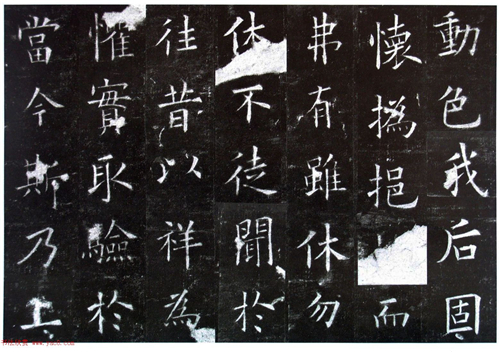 動色我后固
懷撝挹而
弗有雖休勿
休不徒聞於
往昔以祥為
懼實取驗於
當今斯乃上